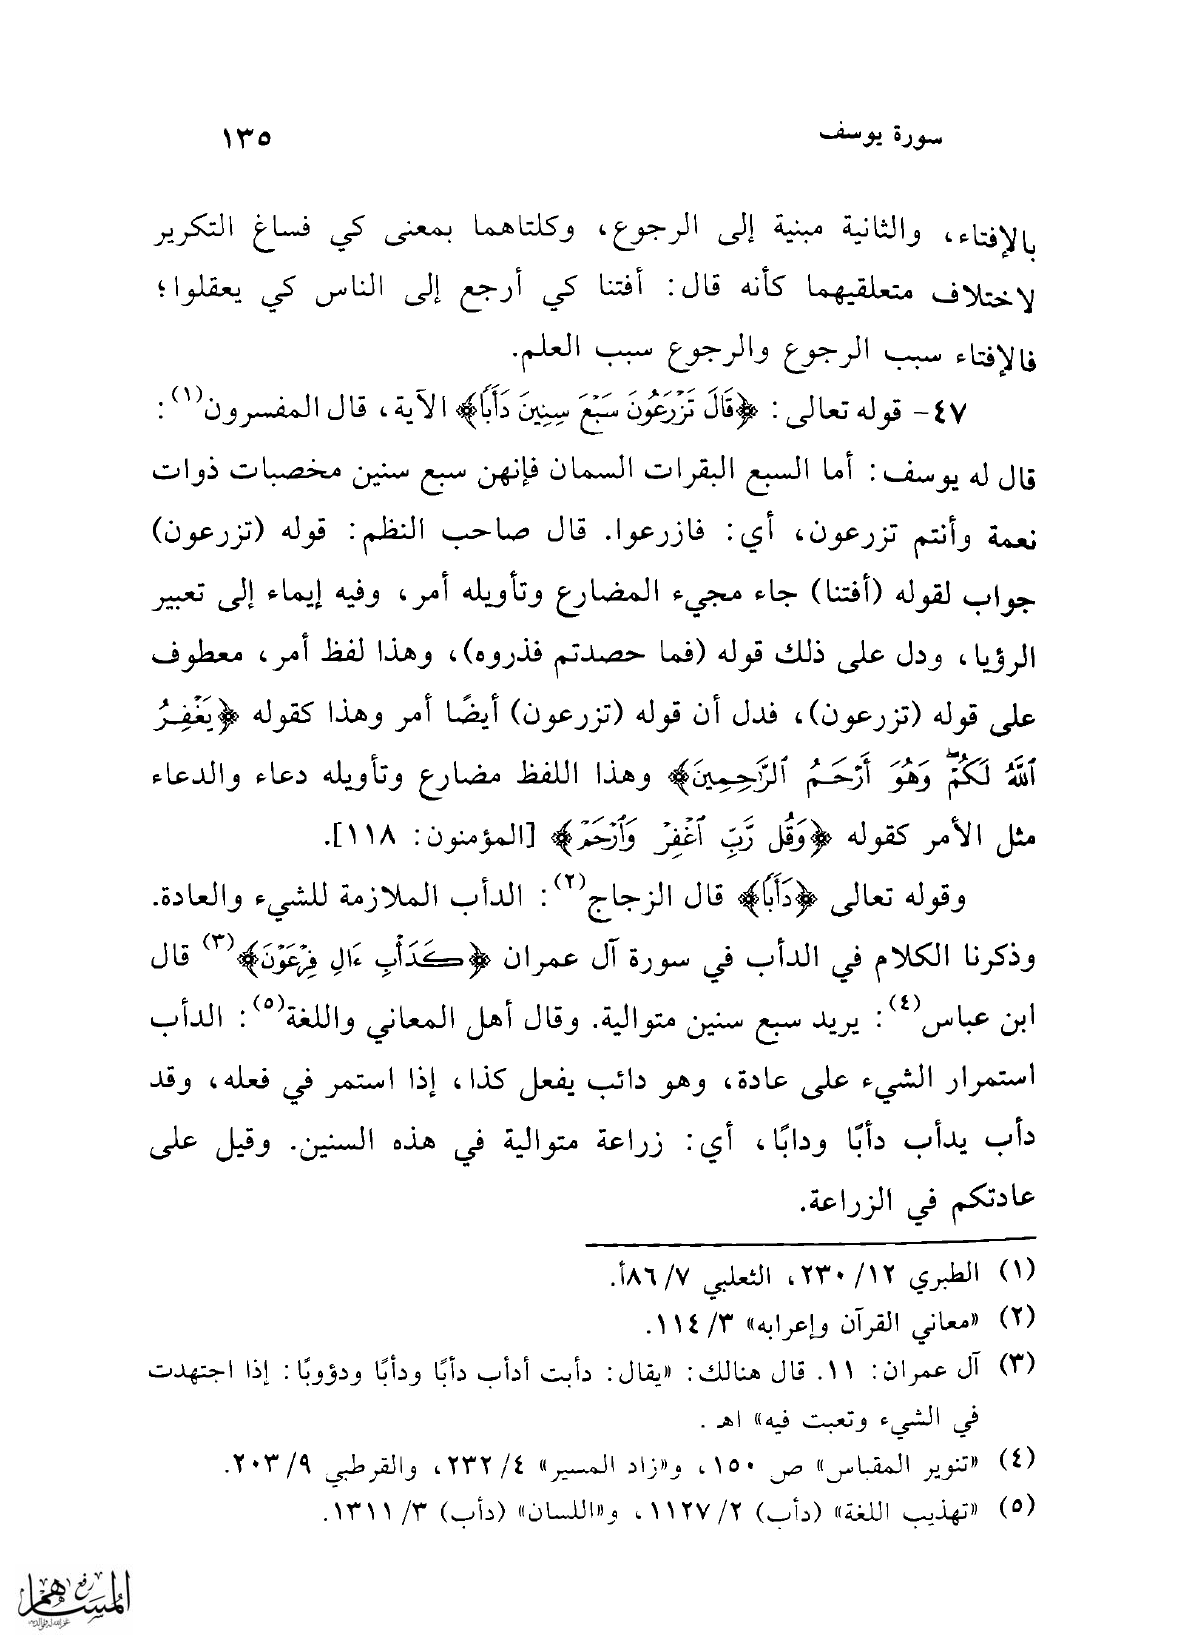 سورة يوسف ١٣٥
بالإفتاء، والثانية مبنية إلى الرجوع، وكلتاهما بمعنى كي فساغ التكرير
لاختلاف متعلقيهما كأنه قال: أفتنا كي أرجع إلى الناس كي يعقلوا؛
فالإفتاء سبب الرجوع والرجوع سبب العلم.
٤٧- قوله تعالى: ﴿قَالَ تَزْرَعُونَ سَبْعَ سِنِينَ دَأَبًا﴾ الآية، قال المفسرون(١):
قال له يوسف: أما السبع البقرات السمان فإنهن سبع سنين مخصبات ذوات
نعمة وأنتم تزرعون، أي: فازرعوا. قال صاحب النظم: قوله (تزرعون)
جواب لقوله (أفتنا) جاء مجيء المضارع وتأويله أمر، وفيه إيماء إلى تعبير
الرؤيا، ودل على ذلك قوله (فما حصدتم فذروه)، وهذا لفظ أمر، معطوف
على قوله (تزرعون)، فدل أن قوله (تزرعون) أيضًا أمر وهذا كقوله ﴿يَغْفِرُ
ٱللَّهُ لَكُمْۖ وَهُوَ أَرْحَمُ ٱلرَّٰحِمِينَ﴾ وهذا اللفظ مضارع وتأويله دعاء والدعاء
مثل الأمر كقوله ﴿وَقُل رَّبِّ ٱغْفِرْ وَٱرْحَمْ﴾ [المؤمنون: ١١٨].
وقوله تعالى ﴿دَأَبًا﴾ قال الزجاج(٢): الدأب الملازمة للشيء والعادة.
وذكرنا الكلام في الدأب في سورة آل عمران ﴿كَدَأْبِ ءَالِ فِرْعَوْنَ﴾(٣) قال
ابن عباس(٤): يريد سبع سنين متوالية. وقال أهل المعاني واللغة(٥): الدأب
استمرار الشيء على عادة، وهو دائب يفعل كذا، إذا استمر في فعله، وقد
دأب يدأب دأبًا ودابًا، أي: زراعة متوالية في هذه السنين. وقيل على
عادتكم في الزراعة.
(١) الطبري ١٢/ ٢٣٠، الثعلبي ٧/ ٨٦أ.
(٢) «معاني القرآن وإعرابه» ٣/ ١١٤.
(٣) آل عمران: ١١. قال هنالك: «يقال: دأبت أدأب دأبًا ودأبًا ودؤوبًا: إذا اجتهدت
في الشيء وتعبت فيه» اهـ .
(٤) «تنوير المقباس» ص ١٥٠، و«زاد المسير» ٤/ ٢٣٢، والقرطبي ٩/ ٢٠٣.
(٥) «تهذيب اللغة» (دأب) ٢/ ١١٢٧، و«اللسان» (دأب) ٣/ ١٣١١.